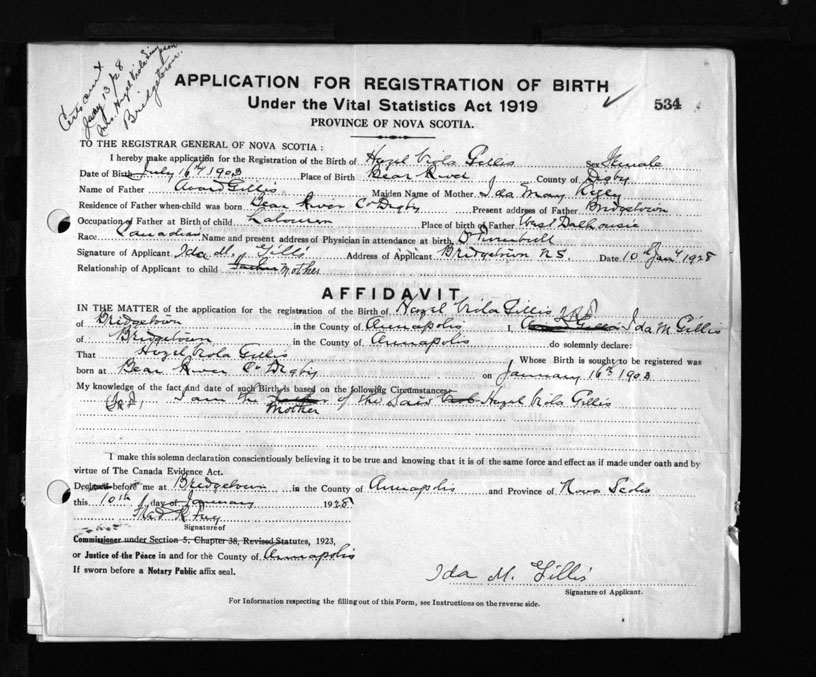 Certs out
Jany 13/28
Mrs. Hazel Viola
Bridgetown.
APPLICATION FOR REGISTRATION OF BIRTH
Under the Vital Statistics Act 1919 534
PROVINCE OF NOVA SCOTIA.
TO THE REGISTRAR GENERAL OF NOVA SCOTIA:
I hereby make application for the Registration of the Birth of Hazel Viola Gillis Sex Female
Date of Birth July 16th 1903 Place of Birth Bear River County of Digby
Name of Father Gillis Maiden Name of Mother Ida May
Residence of Father when child was born Bear River Co Digby Present address of Father Bridgetown
Occupation of Father at Birth of child Labourer Place of birth of Father West Dalhousie
Race Canadian Name and present address of Physician in attendance at birth
Signature of Applicant Ida M. Gillis Address of Applicant Bridgetown N.S. Date 10th Jany 1928
Relationship of Applicant to child Father Mother
AFFIDAVIT
IN THE MATTER of the application for the registration of the Birth of Hazel Viola Gillis
of Bridgetown in the County of Annapolis I, Ida M Gillis
of Bridgetown in the County of Annapolis do solemnly declare:
That Hazel Viola Gillis Whose Birth is sought to be registered was
born at Bear River Co Digby on January 16th 1903
My knowledge of the fact and date of such Birth is based on the following Circumstances
I am the Mother of the said Hazel Viola Gillis
I make this solemn declaration conscientiously believing it to be true and knowing that it is of the same force and effect as if made under oath and by
virtue of The Canada Evidence Act.
Declared before me at Bridgetown in the County of Annapolis and Province of Nova Scotia
this 10th day of January 1928
Signature of
Commissioner under Section 5, Chapter 38, Revised Statutes, 1923,
or Justice of the Peace in and for the County of Annapolis
If sworn before a Notary Public affix seal.
Ida M. Gillis
Signature of Applicant.
For Information respecting the filling out of this Form, see Instructions on the reverse side.